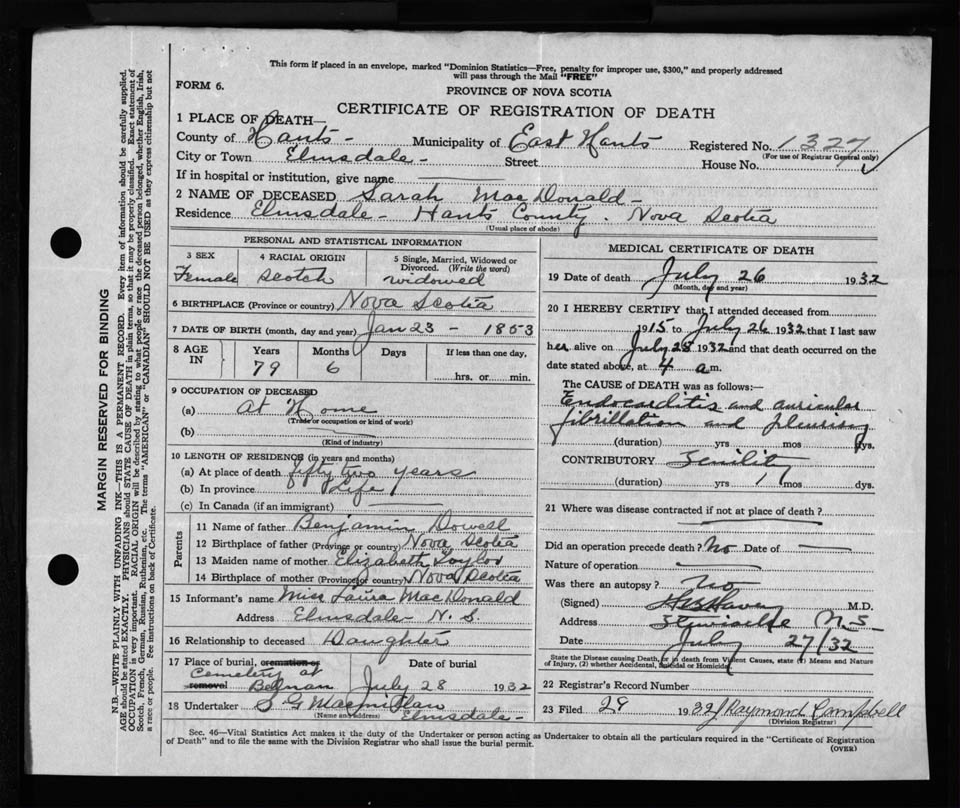 This form if placed in an envelope, marked "Dominion Statistics—Free, penalty for improper use, $300," and properly addressed
will pass through the Mail "FREE"
FORM 6.
PROVINCE OF NOVA SCOTIA
CERTIFICATE OF REGISTRATION OF DEATH
1 PLACE OF DEATH—
County of Hants - Municipality of East Hants Registered No. 1327
(For use of Registrar General only)
City or Town Elmsdale - Street House No.
If in hospital or institution, give name
2 NAME OF DECEASED Sarah MacDonald -
Residence Elmsdale - Hants County. Nova Scotia
(Usual place of abode)
PERSONAL AND STATISTICAL INFORMATION
3 SEX 4 RACIAL ORIGIN 5 Single, Married, Widowed or
Divorced. (Write the word)
Female Scotch widowed
6 BIRTHPLACE (Province or country) Nova Scotia
7 DATE OF BIRTH (month, day and year) Jan 23 - 1853
8 AGE IN Years Months Days If less than one day,
79 6 hrs. or min.
9 OCCUPATION OF DECEASED
(a) At Home
(Trade or occupation or kind of work)
(b)
(Kind of industry)
10 LENGTH OF RESIDENCE (in years and months)
(a) At place of death fifty two years
(b) In province Life
(c) In Canada (if an immigrant)
Parents
11 Name of father Benjamin Dowell
12 Birthplace of father (Province or country) Nova Scotia
13 Maiden name of mother Elizabeth Taylor
14 Birthplace of mother (Province or country) Nova Scotia
15 Informant's name Miss Laura MacDonald
Address Elmsdale N. S.
16 Relationship to deceased Daughter
17 Place of burial, cremation or Date of burial
Cemetery at
removal July 28 1932
18 Undertaker S G Macmillan
(Name and address) Elmsdale -
MEDICAL CERTIFICATE OF DEATH
19 Date of death July 26 1932
(Month, day and year)
20 I HEREBY CERTIFY that I attended deceased from
1915 to July 26 1932 that I last saw
her alive on July 25 1932 and that death occurred on the
date stated above, at 4 a m.
The CAUSE of DEATH was as follows:—
Endocarditis and auricular
fibrillation and pleurisy
(duration) yrs mos dys.
CONTRIBUTORY Senility
(duration) yrs 1 mos dys.
21 Where was disease contracted if not at place of death?
Did an operation precede death? No Date of
Nature of operation
Was there an autopsy? No
(Signed) M.D.
Address Stewiacke N.S
Date July 27/32
State the Disease causing Death, or in death from Violent Causes, state (1) Means and Nature
of Injury, (2) whether Accidental, Suicidal or Homicidal.
22 Registrar's Record Number
23 Filed 28 1932 Raymond Campbell
(Division Registrar)
Sec. 46—Vital Statistics Act makes it the duty of the Undertaker or person acting as Undertaker to obtain all the particulars required in the "Certificate of Registration
of Death" and to file the same with the Division Registrar who shall issue the burial permit.
(OVER)
MARGIN RESERVED FOR BINDING
N.B.—WRITE PLAINLY WITH UNFADING INK—THIS IS A PERMANENT RECORD. Every item of information should be carefully supplied.
AGE should be stated EXACTLY. PHYSICIANS should STATE CAUSE OF DEATH in plain terms, so that it may be properly classified. Exact statement of
OCCUPATION is very important. RACIAL ORIGIN will be described by stating to what people or race the deceased person belonged, whether English, Irish,
Scotch, French, German, Russian, Ruthenian, etc. The terms "AMERICAN" or "CANADIAN" SHOULD NOT BE USED as they express citizenship but not
a race or people. See instructions on back of Certificate.